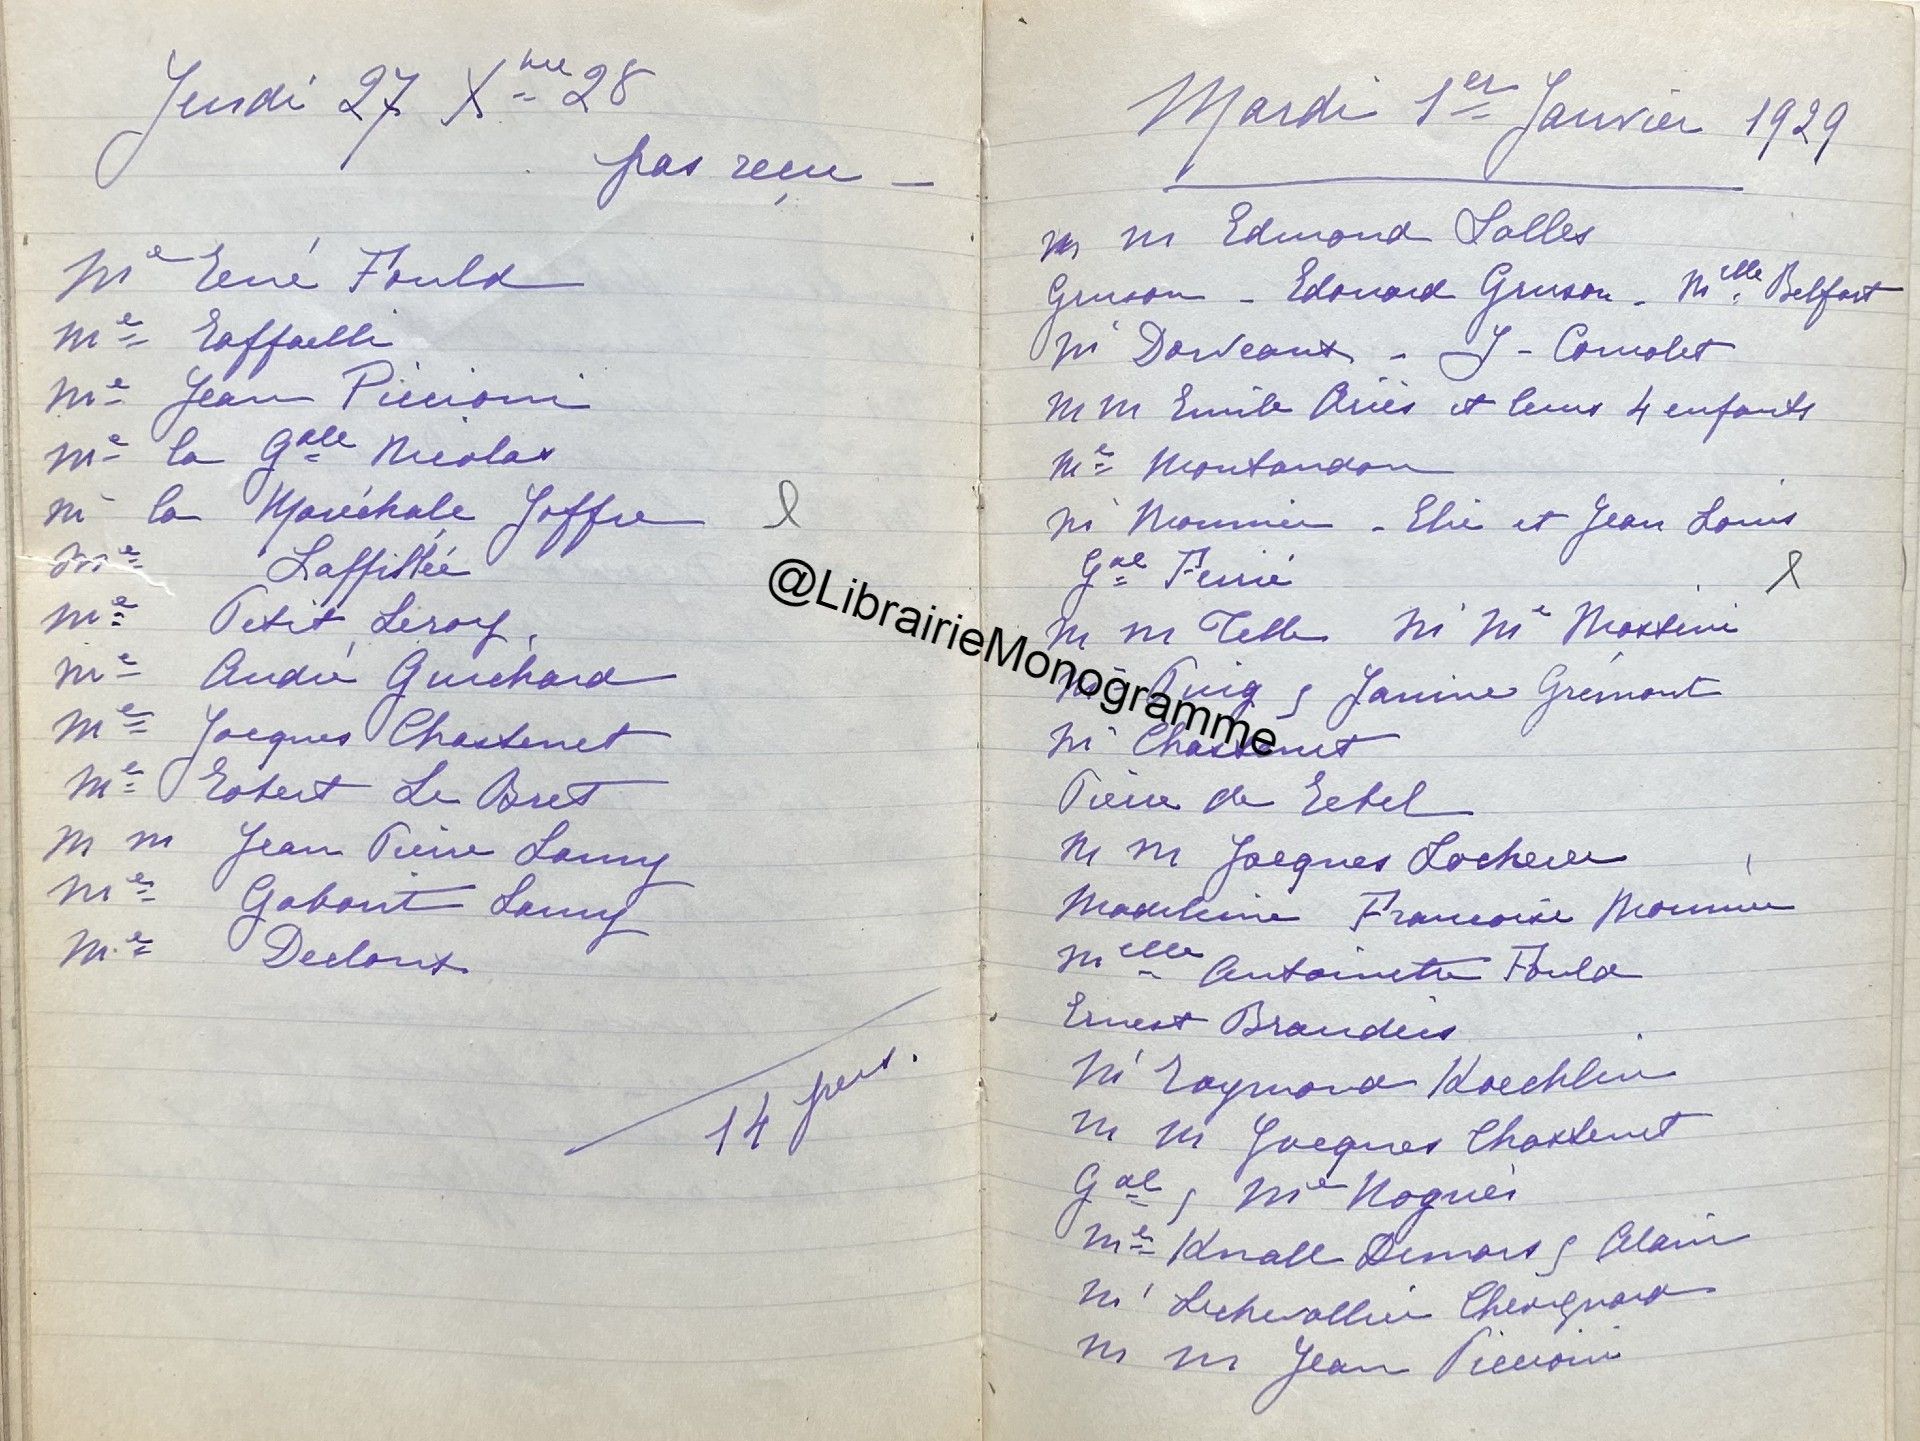 Jeudi 27 Xbre 28
pas reçu –
Me René Fould
Me Raffaelli
Me Jean Piccioni
Me la Gale Nicolas
M la Maréchale Joffre
Me Laffillée
Me Petit Leroy
Me André Guichard
Me Jacques Chastenet
Me Robert Le Bret
M M Jean Pierre Lamy
Me Gabarit Lamy
Me Decloux
14 pers.
Mardi 1er Janvier 1929
M M Edmond Salles
Gruson – Edouard Gruson – Melle Belfort
M Dorveaux – J – Comolet
M M Emile Ariès et leurs 4 enfants
Me Montandon
M Mounier – Elie et Jean Louis
Gal Ferrié
M M Telle M Me Mossini
Puig & Janine Grémont
M Chastenet
Pierre de Rebel
M M Jacques Locherer
Madeleine Francoise Mounier
Melle Antoinette Fould
Ernest Brandeis
M Raymond Koechlin
M M Jacques Chastenet
Gal & Me Noguès
Me Knall Demars & Alain
M Lechevallier Chevignard
M M Jean Piccioni
@LibrairieMonogramme